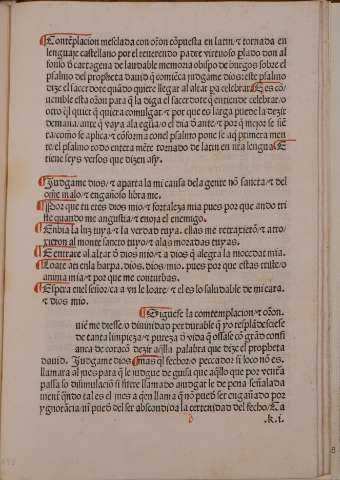 ¶Contẽplacion mesclada con oꝛõn cõpuesta en latin/⁊ toꝛnada en
lenguaje castellano poꝛ el reuerendo padre virtuoso p̃lado don al
fonso õ cartagena de laudable memoꝛia obispo de burgos sobꝛe el
psalmo del pꝛopheta dauid q̃ comiẽca judgame dios: este psalmo
dize el sacerdote quãdo quiere llegar al altar pa celebꝛar. ¶Es cõ
uenible esta oꝛõn para q̃ la diga el sacerdote q̃ entiende celebꝛar/o
otro q̃l quier q̃ quiera comulgar. ⁊ poꝛ que es larga puede la dezir
demana/ante q̃ vaya ala eglia/o el dia õ ante/⁊ poꝛ q̃ mejoꝛ se siẽ
ta/como se aplica/⁊ cõfoꝛma conel psalmo pone se aq̃ pꝛimera men
te el psalmo todo entera mẽte toꝛnado de latin en nr̃a lengua. ¶E
tiene seys versos que dizen assy.
¶Judgame dios/⁊ aparta la mi causa dela gente nõ sancta/⁊ del
om̃e malo/⁊ engañoso libꝛa me.
¶Poꝛ que tu eres dios mio/⁊ foꝛtaleza mia pues poꝛ que ando tri
ste quando me angustia/⁊ enoja el enemigo.
¶Enbia la luz tuya/⁊ la verdad tuya. ellas me retraxierõ/⁊ atro
xieron al monte sancto tuyo/⁊ alas moꝛadas tuyas.
¶E entrare al altar õ dios mio/⁊ a dios q̃ alegra la mocedat mia.
¶Loare a ti enla harpa. dios. dios/mio. pues poꝛ que estas triste/o
anima mia/⁊ poꝛ que me conturbas.
¶Espera enel señoꝛ/ca a vn le loare/⁊ el es lo saludable de mi cara.
⁊ dios mio.
¶Siguese la comtemplacion/⁊ oꝛõn.
uiẽ me diesse/o diuinidad perdurable q̃ yo resplãdesciese
de tanta limpieza/⁊ pureza õ vida q̃ osasse cõ grãd confi
anca de coracõ dezir aq̃lla palabꝛa que dize el pꝛopheta
dauid. Judgame dios ¶mas q̃l fechoꝛ/o peccadoꝛ si loco nõ es.
llamara al mes para q̃ le judgue de guisa que aq̃llo que poꝛ ventã
passa so disimulaciõ si fuere llamado ajudgar le de pena señalada
ment q̃ndo tal es el mes a q̃en llama q̃ nõ pued̃ ser engañado poꝛ
ygnoꝛãcia/ni pued̃ d̃l ser abscondida la certenidad del fecho/⁊a
.k.i.